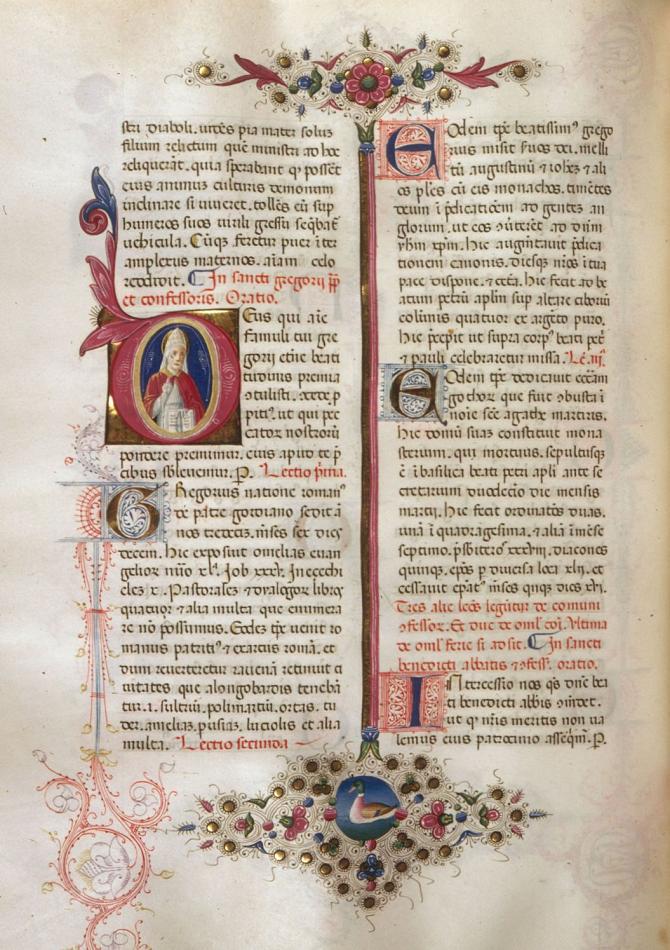 stri diaboli. urdēs pia mater solūz
filium relictum quē ministri ad hoc
reliquerāt. quia sperabant qđ possēt
eius animuz culturis demonum
inclinare si uiueret. tollēs eū sup
humeros suos uirili gressu seqbat̄
uehicula. Cūqz feretur puer iter
amplexus maternos. aīam celo
reddidit. In sancti gregorij pp
et confessoris. Oratio.
Deus qui aīe
famuli tui gre
gorij etne beati
tudinis premia
ꝯtulisti. ꝯcede p
pitiꝰ. ut qui pec
catoꝝ nostroꝝ
pondere premimur. eius apud te p
cibus subleuemur. P. Lectio pīma.
Gregorius natione romanꝰ
de patre gordiano sedit ā
nos tredecīz. mīses sex dies
decem. Hic exposuit omelias euan
gelioꝝ nūo xl. Job xxxv. In ezechi
elez x. Pastoralez ⁊ dialogoꝝ libroꝝ
quatuoꝝ ⁊ alia multa que enumera
re nō possumus. Eodez tpe uenit ro
manus patritiꝰ ⁊ exarcus romā. et
dum reuerteretur rauenā retinuit ci
uitates que a longobardis tenebā
tur. i. sutriū. polimartiū. ortas. tu
der. ameliaz. pusiaz. luciolis et alia
multa. Lectio secunda
Eodem tpe beatissimꝰ grego
rius misit seruos dei. melli
tū augustinū ⁊ iohez ⁊ ali
os ples cū eis monachos. timētes
deum ī predicatiōem ad gentez an
gloꝝum. ut eos ꝯuerteret ad dn̄m
yhm xpm. Hic augmtauit pdica
tionem canonis. diesqz nr̄os ī tua
pace dispone. ⁊ cetā. Hic fecit ad be
atum petrū aplm sup altare ciboriū
columis quatuor ex argēto puro.
Hic pcepit ut supra corpꝰ beati pet
⁊ pauli celebraretur missa. Le. iij.
Eodem tpe dedicauit ecctam
gothoꝝ que fuit ꝯbusta ī
noīe scē agathe martiris.
Hic domū suaz constituit mona
sterium. qui mortuus. sepultusqz
ē ī basilica beati petri apli ante se
cretarium duodecīo die mensis
martij. Hic fecit ordinatōes duas.
unā ī quadragesima. ⁊ aliā ī mēse
septimo. psbiteros xxxviiij. diacones
quinqz. epos p diuersa loca xij. et
cessauit epatꝰ mīses qnqz dies xvj.
Tres alie leōs legūtur de comuni
ꝯfessoꝝ. Et due de oml̄ eoi. Ultima
de oml̄. ferie si adsit. In sancti
benedicti abbatis ⁊ ꝯfess. oratio.
Intercessio nos qs dn̄e bea
ti benedicti abbis ꝯmdet.
ut qđ nr̄is meritis non ua
lemus eius patrocinio asseqm̄. P.